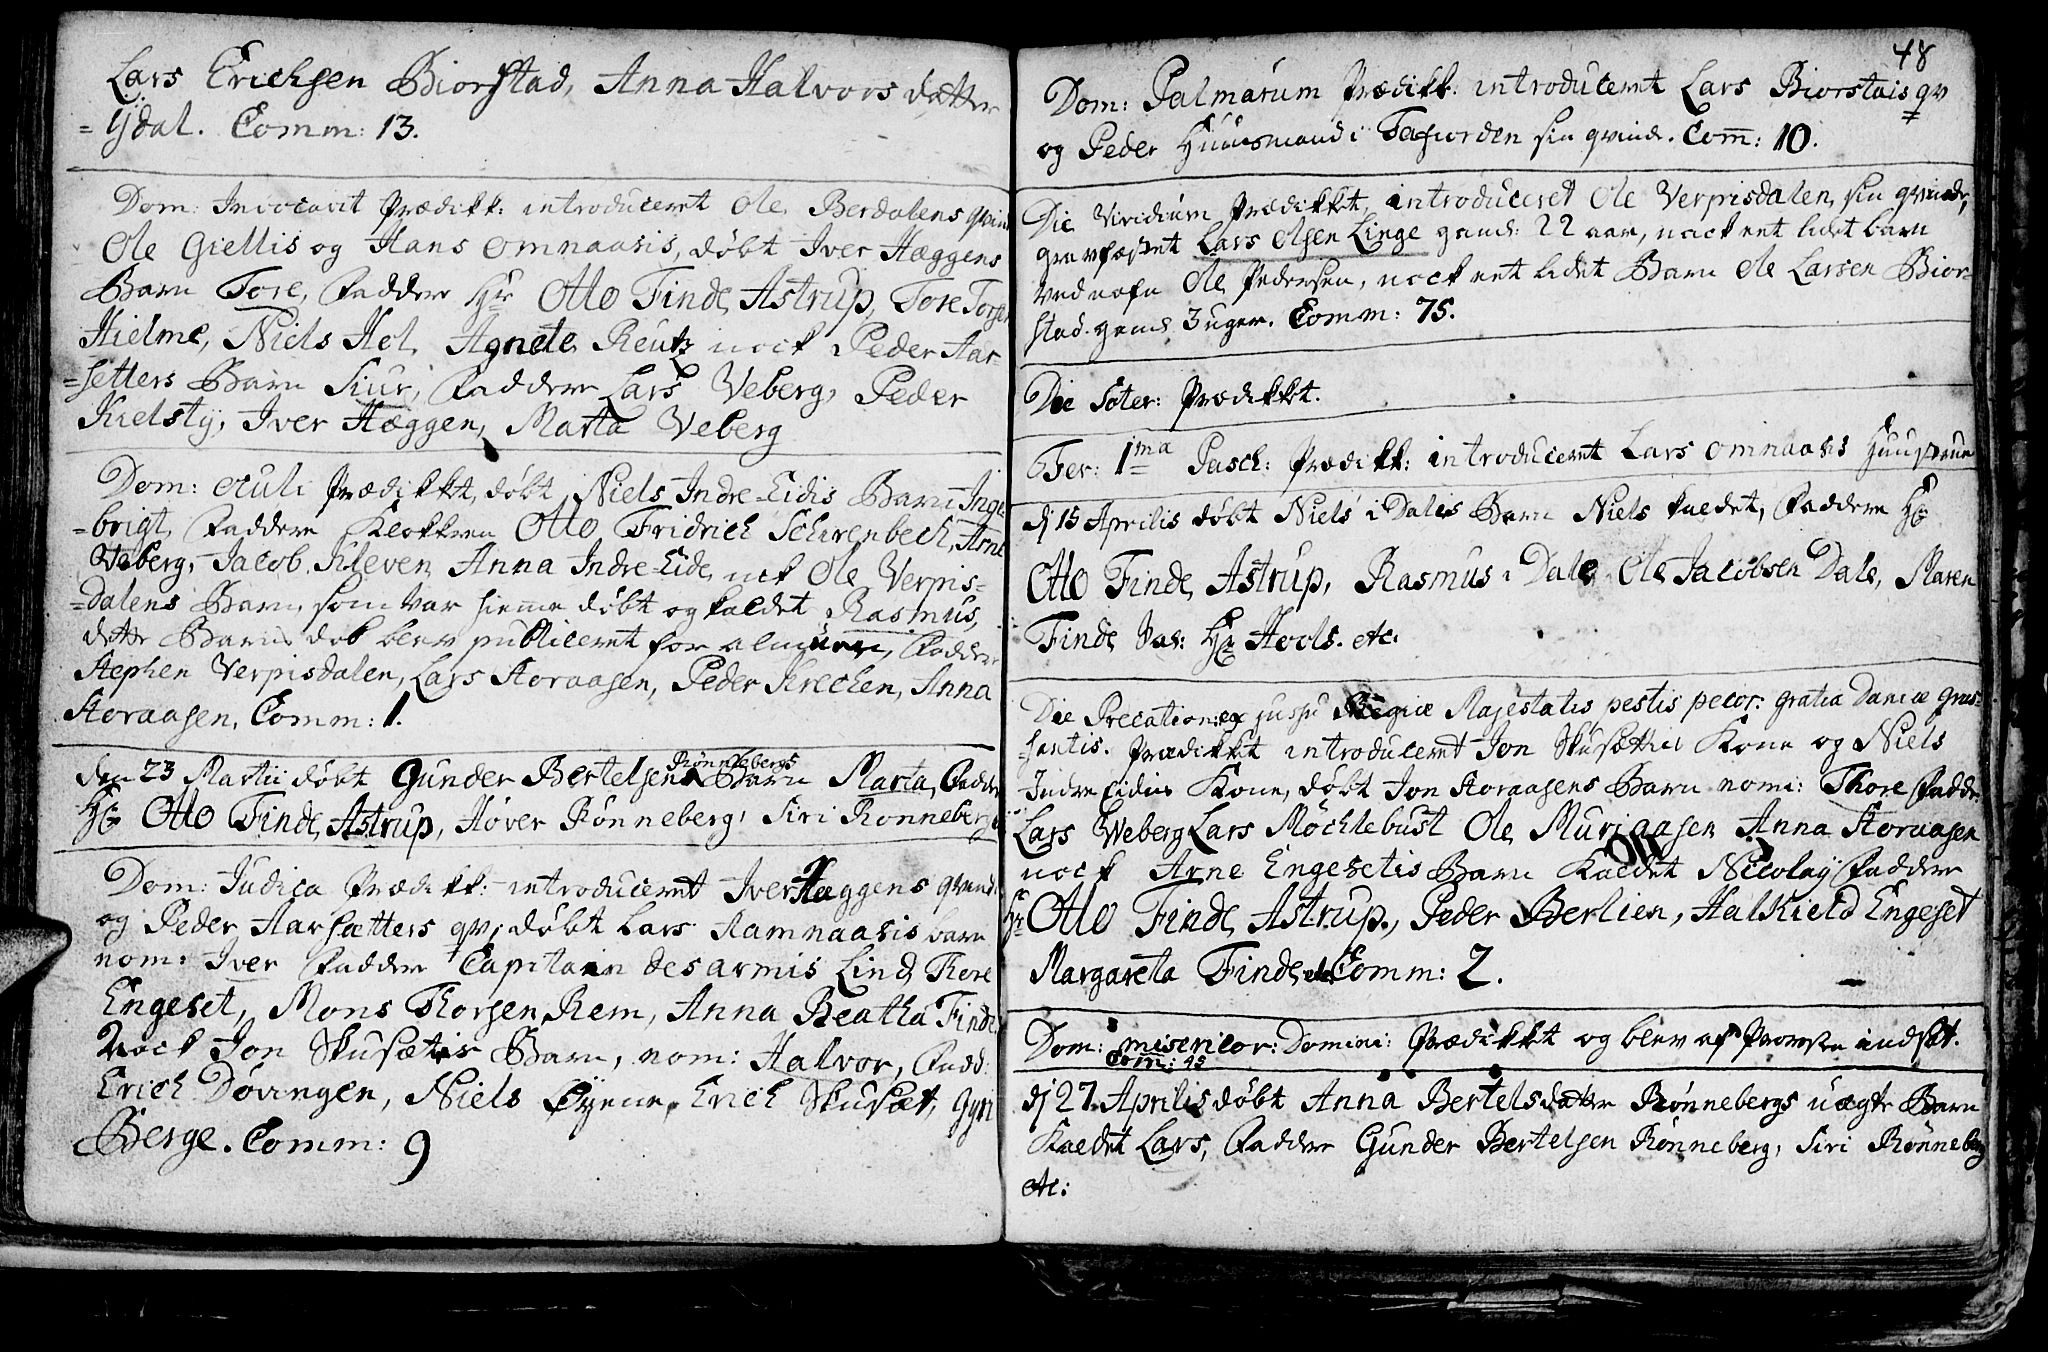 Lars Erichsen Biorstad, Anna Halvors datter
= ÿdal. Comm: 13.
Dom: Invocavit Prædikk: introduceret Ole Berdalens qvind
Ole Giellis og Hans Omnaasis, døbt Iver Hæggens
Barn Tore, Faddere Hr Otto Finde Astrup, Tore Torsen
Hielme, Niels Hol, Agnete Reutz nock Peder Aar-
=setters Barn Siur, Faddere Lars Veberg, Peder
Kielstÿ, Iver Hæggen, Marta Veberg
Dom: Oculi Prædikket, døbt Niels Indre-Eidis Barn Inge
=brigt, Faddere Klokkeren Otto Fridrich Schrenbech, Arne
Veberg, Jacob Kleven Anna Indre-Eide, nok Ole Verpis-
=dalens Barn, som var hiemme døbt og kaldet Rasmus,
dette Barns dob blev publiceret for almuen, Faddere
Stephen Verpisdalen, Lars Storaasen, Peder Krechen, Anna
Storaasen, Comm: 1.
Rønnebergs
den 23 Martii døbt Gunder Bertelsens Barn Marta, Fadde
Hr Otto Finde Astrup, Høver Rønneberg, Siri Rønneberg
Dom: Judica Prædikk: introduceret Iver Hæggens qvinde
og Peder Aarsætters qv, døbt Lars Ramnaasis barn
nom: Iver Faddere Capitain desarmis Lind, Tore
Engeset, Mons Thorsen Rem, Anna Beatha Finde
Nock Jon Skusætis Barn, nom: Halvor, Fadd:
Erich Døvingen, Niels Øyene, Erich Skusæt, Gyri
Berge. Comm: 9
48
Dom: Palmarum Prædikk: introduceret Lars Biorstais qv
og Peder Huusmand i Tafiorden sin qvinde. Com: 10.
Die Viridium Prædikket, introduceret Ole Verpisdalen, sin qvinde,
gravfæstet Lars Olsen Linge gaml: 22 aar, nock ett lidet barn
ved nafn Ole Pedersen, nock ett lidet Barn Ole Larsen Bior-
stad. gaml. 3 uger. Comm: 75.
Die Soter: Prædikket.
Fer: 1ma Pasch: Prædikk: introduceret Lars Omnaasis Huustrue
dj 15 Aprilis døbt Niels i Dalis Barn Niels kaldet, Faddere Hr
Otto Finde Astrup, Rasmus i Dale, Ole Jacobsen Dale, Maren
Finde Sal: Hr Hools. etc:
Die Precation: ex jussu Regiæ Majestatis pestis pecor: gratia Daniæ gras-
=santis. Prædikket introduceret Jon Skusættis Kone og Niels
Indre Eidis Kone, døbt Jon Storaasens Barn nom: Thore Fadde
Lars Weberg Lars Møchlebust Ole Muriaasen Anna Storaasen
Ott
nock Arne Engesetis Barn Kaldet Nicolaÿ Faddere
Hr Otto Finde Astrup., Peder Berlien, Halkield Engeset
Margareta Finde, etc Comm: 2.
Dom: misericor: Domini: Prædikket og blev af Provsten indsat.
Com: 45
dj 27 Aprilis døbt Anna Bertelsdatter Rønnebergs uægte Barn
Kaldet Lars, Faddere Gunder Bertelsen Rønneberg, Siri Rønneberg
etc: